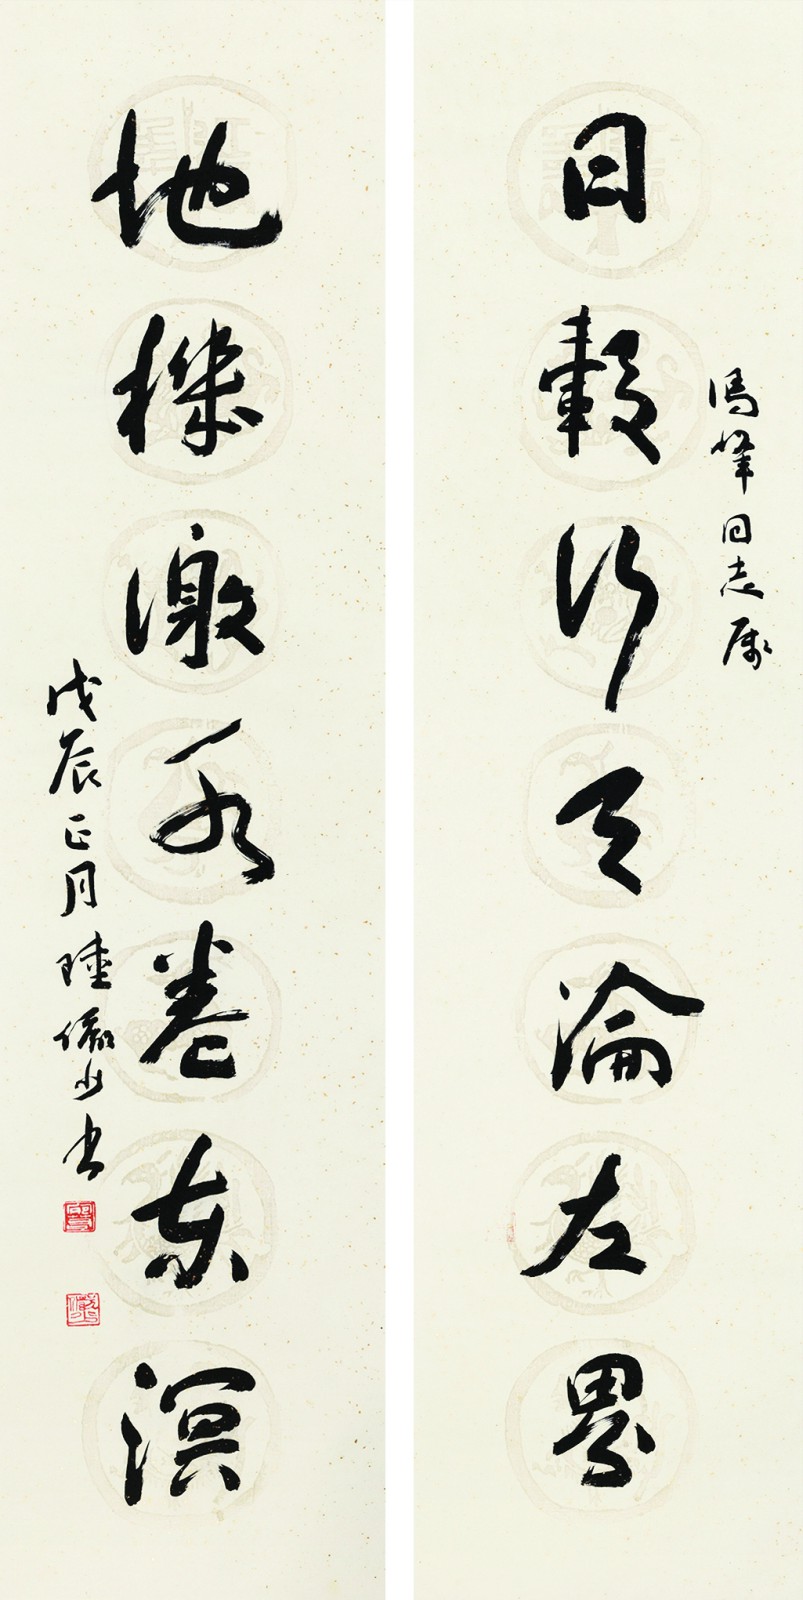 馮峰同志属
日轂行天淪左界
地機激水卷東溟
戊辰正月陸儼少書